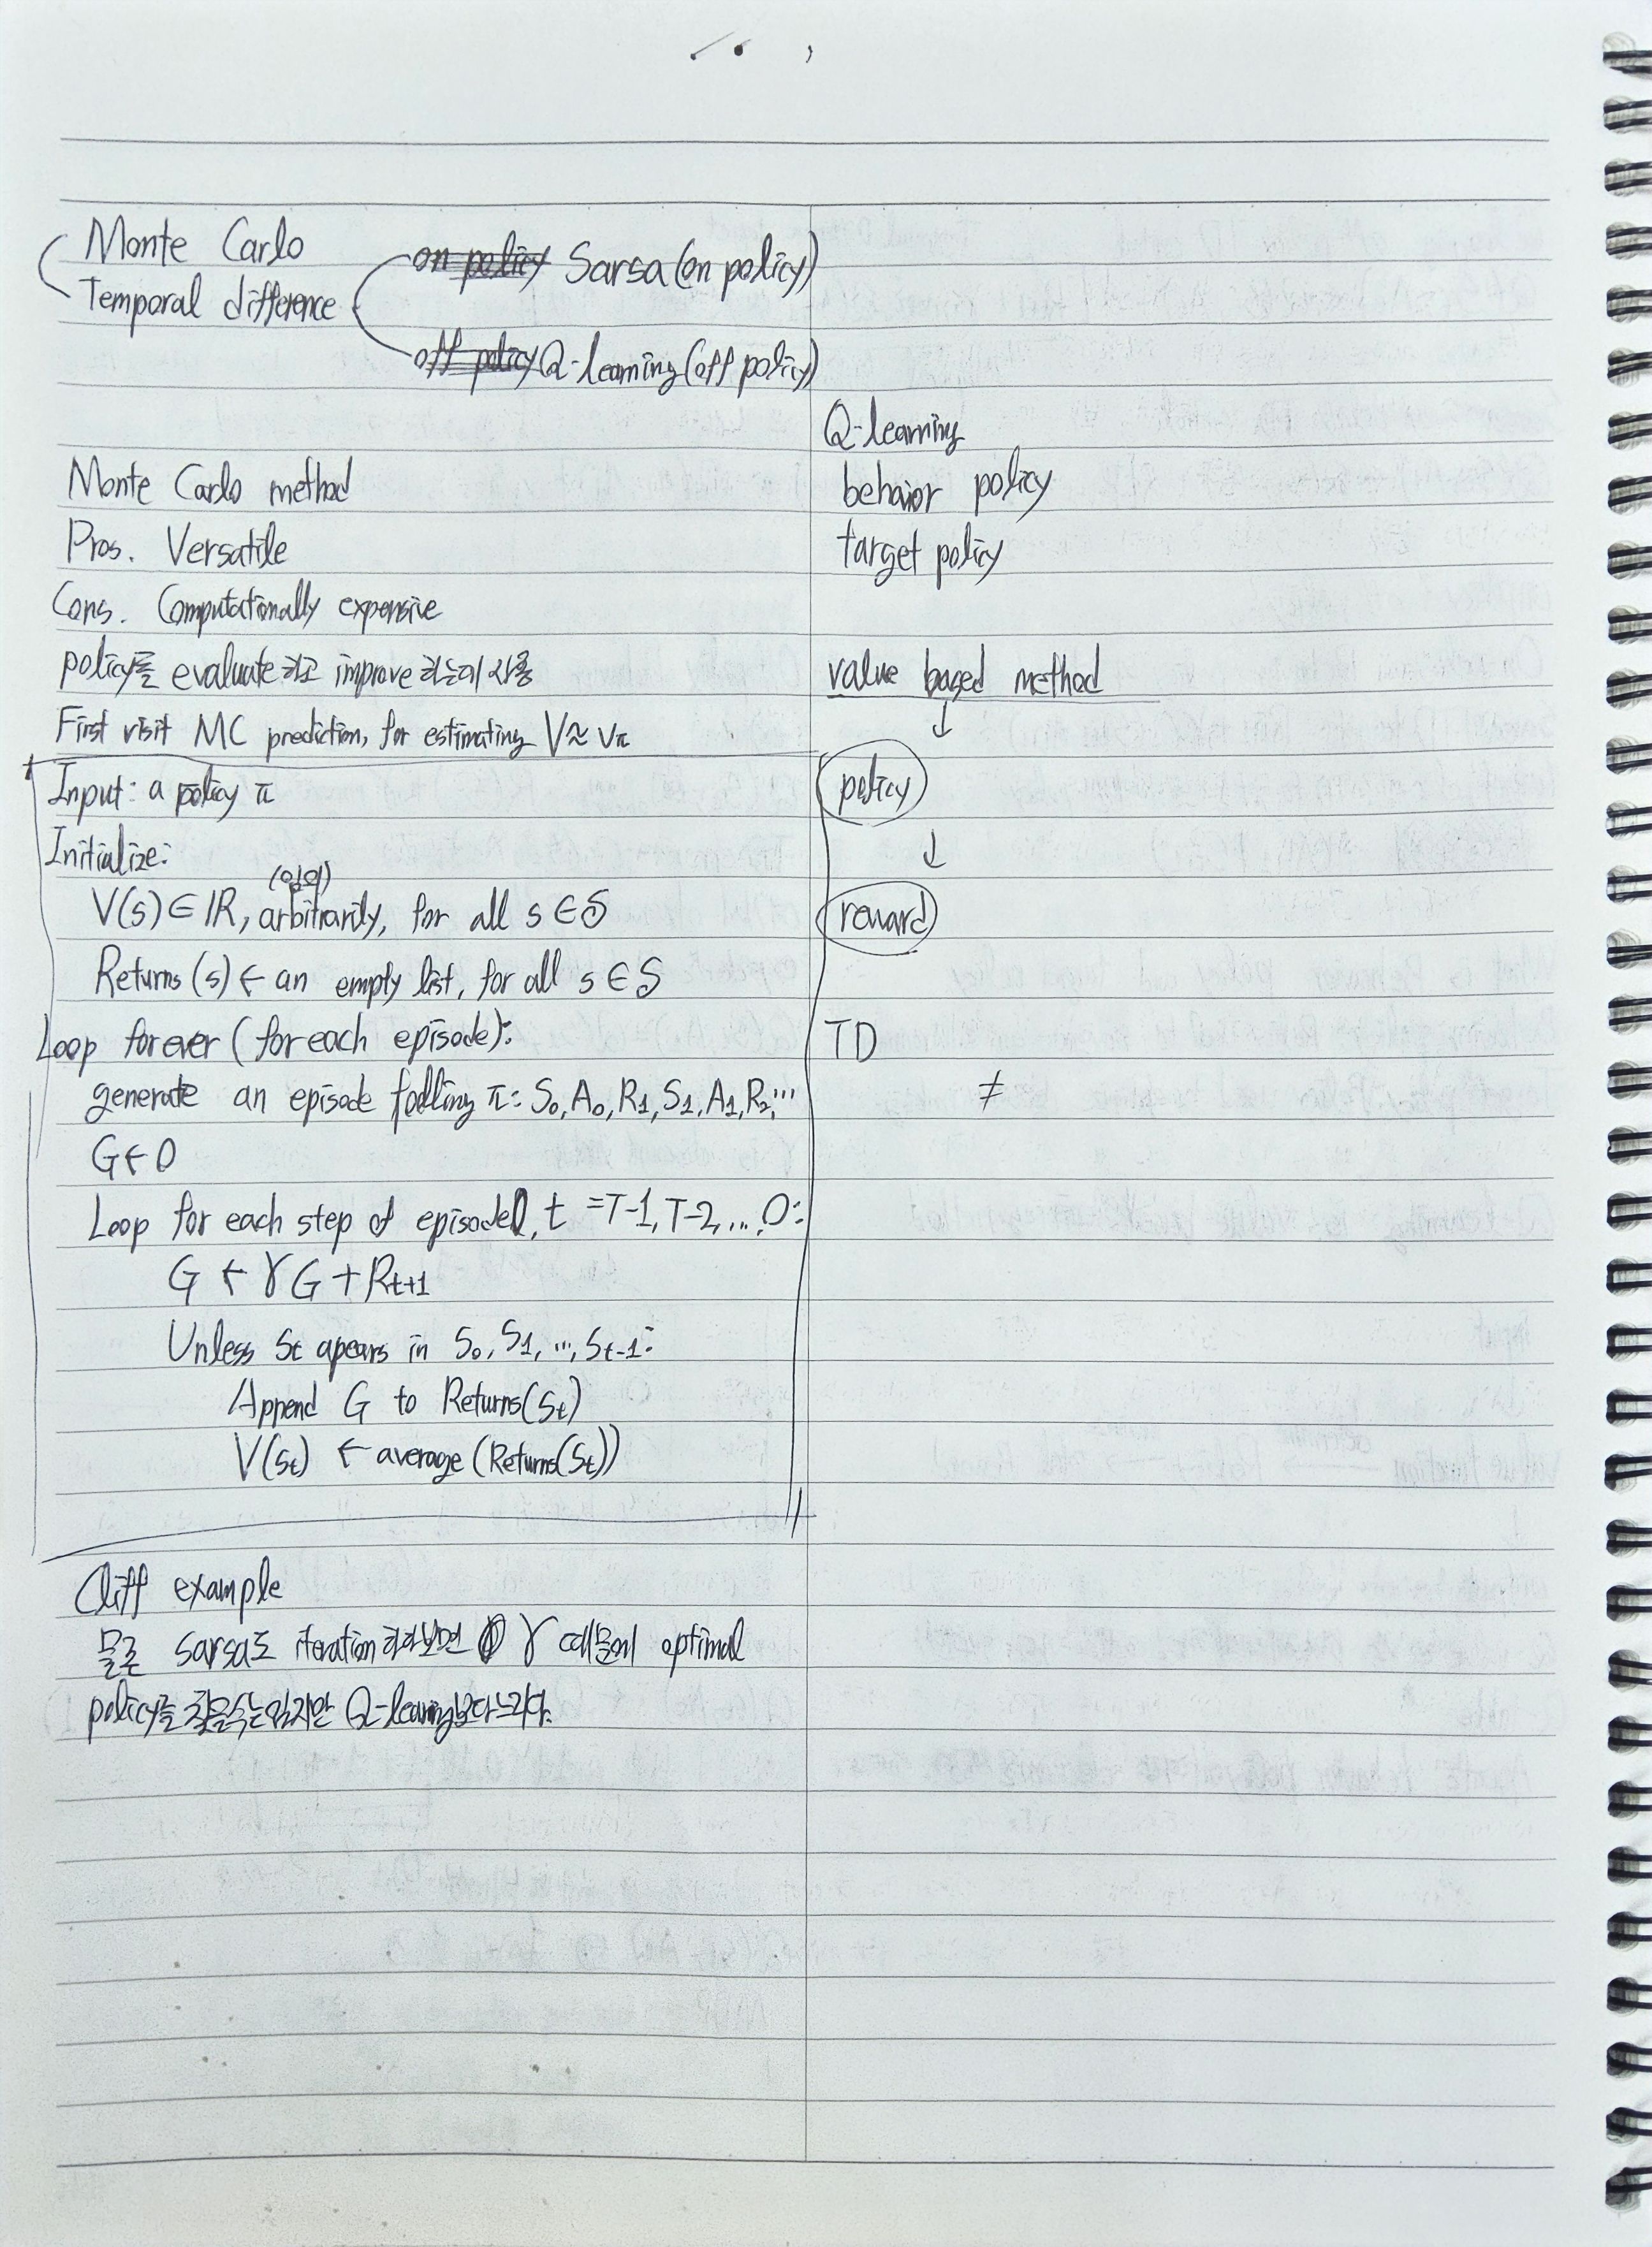 Monte Carlo
Temporal difference
on policy Sarsa (on policy)
off policy Q-learning (off policy)
Monte Carlo method
Pros. Versatile
Cons. Computationally expensive
policy를 evaluate하고 improve 하는데 사용
First visit MC prediction, for estimating V≈vπ
Input: a policy π
Initialize:
(임의)
V(s)∈ℝ, arbitrarily, for all s∈S
Returns(s) ← an empty list, for all s∈S
Loop forever (for each episode):
generate an episode π: S₀, A₀, R₁, S₁, A₁, R₂, ...
G ← 0
Loop for each step of episode, t = T-1, T-2, ..., 0:
G ← γG + Rt+1
Unless St apears in S₀, S₁, ..., St-1:
Append G to Returns(St)
V(St) ← average(Returns(St))
Cliff example
물론 Sarsa도 iteration 하다보면 γ 때문에 optimal
policy를 찾을수는 있지만 Q-learing보다 느리다.
Q-learning
behaior policy
target policy
value based method
↓
policy
↓
reward
TD
≠